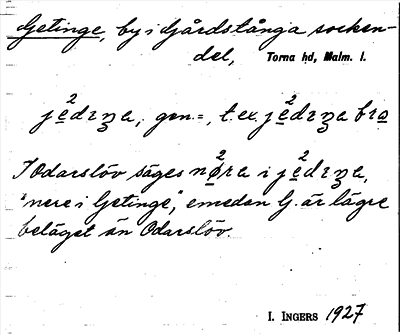 Getinge, by i Gårdstånga socken-
del, Torna hd, Malm. l.
jedɪŋa, gen. =, t.ex. jedɪŋa bro
I Odarslöv säges nøra i jedɪŋa,
"nere i Getinge", emedan G. är lägre
beläget än Odarslöv.
I. INGERS 1927